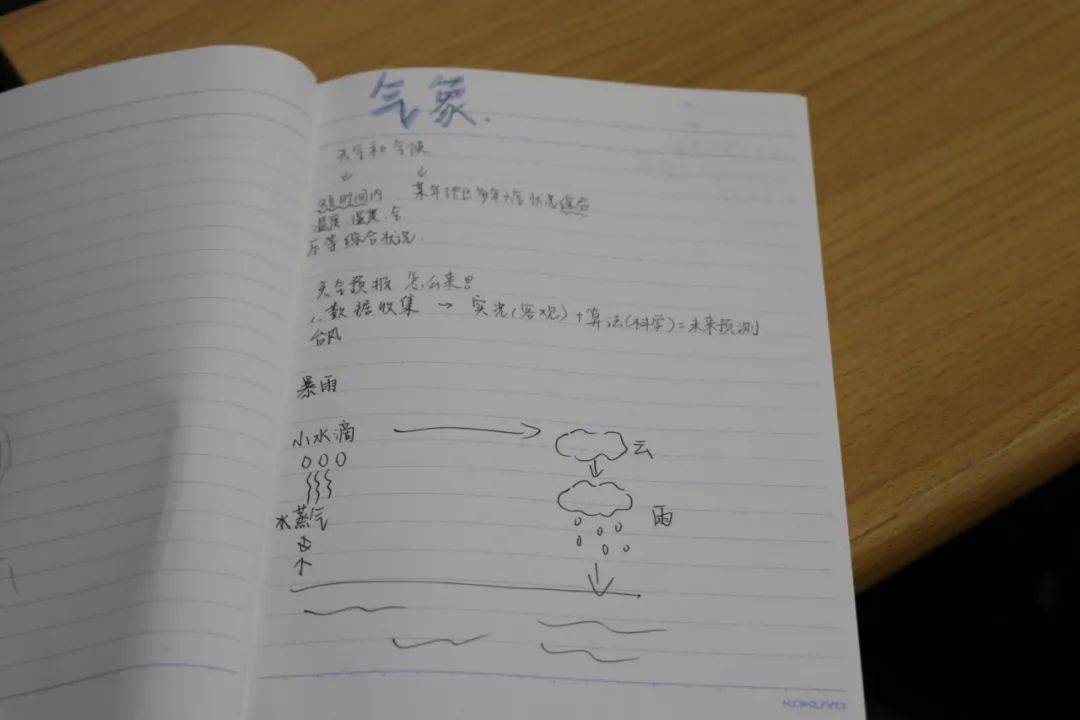 气象.
天气和气候
↓ ↓
短时间内 某年地区多年大气状况综合
温度 湿度 气
压等综合状况.
天气预报 怎么来
1.数据收集 → 实况(客观)+算法(科学)=未来预测
台风
暴雨
小水滴
云
水蒸气
雨
KOKUYO